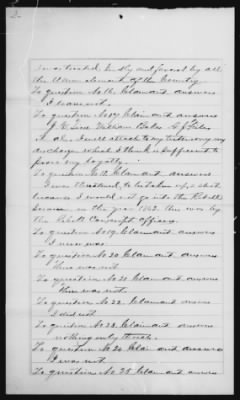 2
To question No 16 Claimant answers
I have not.
To question No 17 Claimant answers
J. C. Tine William Bates
I also I will attach to my testimony my
discharge which I think is sufficient to
prove my loyalty.
To question No 18 Claimant answers
I was threatened, to be taken up, & shot
because I would not go into the Rebel
service in the year 1862. this was by
the Rebel Conscript Officers.
To question No 19. Claimant answers
I never was.
To question No 20 Claimant answers
There was not
To question No 21 Claimant answers
There was not.
To question No 22. Claimant answers
I did not
To question No 23. Claimant answers
nothing only threats.
To question No 24 Claimant answers
I was not.
To question No 25 Claimant answers